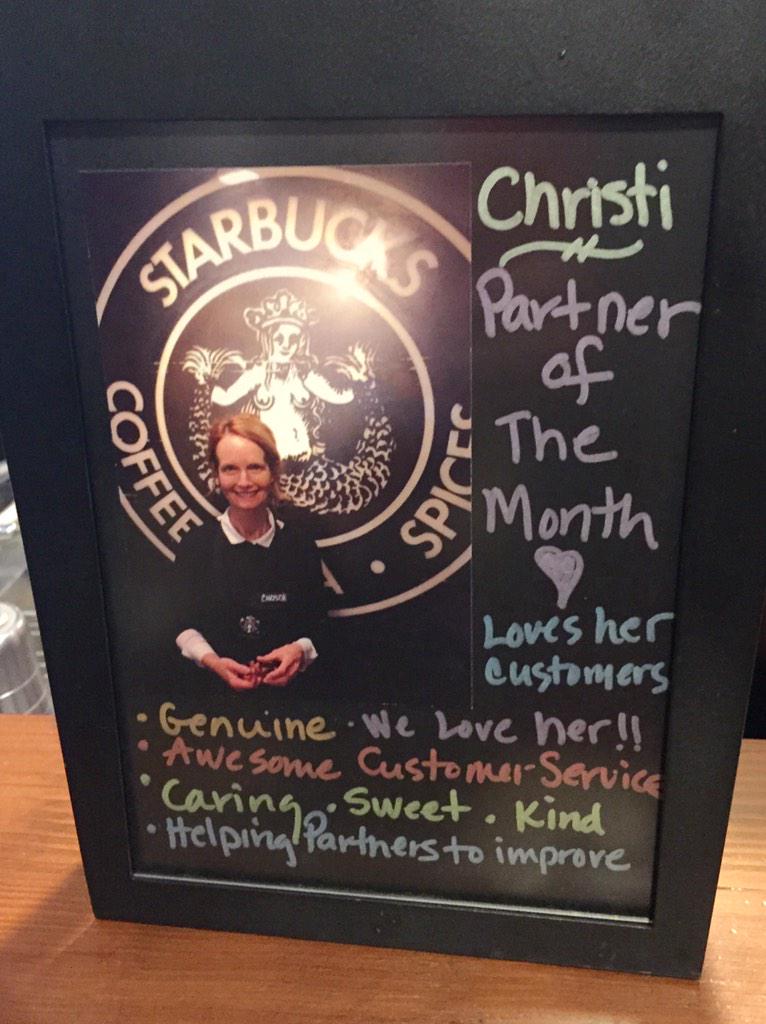 STARBUCKS
COFFEE
SPICES
Christi
Partner
of
The
Month
Loves her
customers
• Genuine • We Love her!!
• Awesome Customer Service
• Caring • Sweet • Kind
• Helping Partners to improve